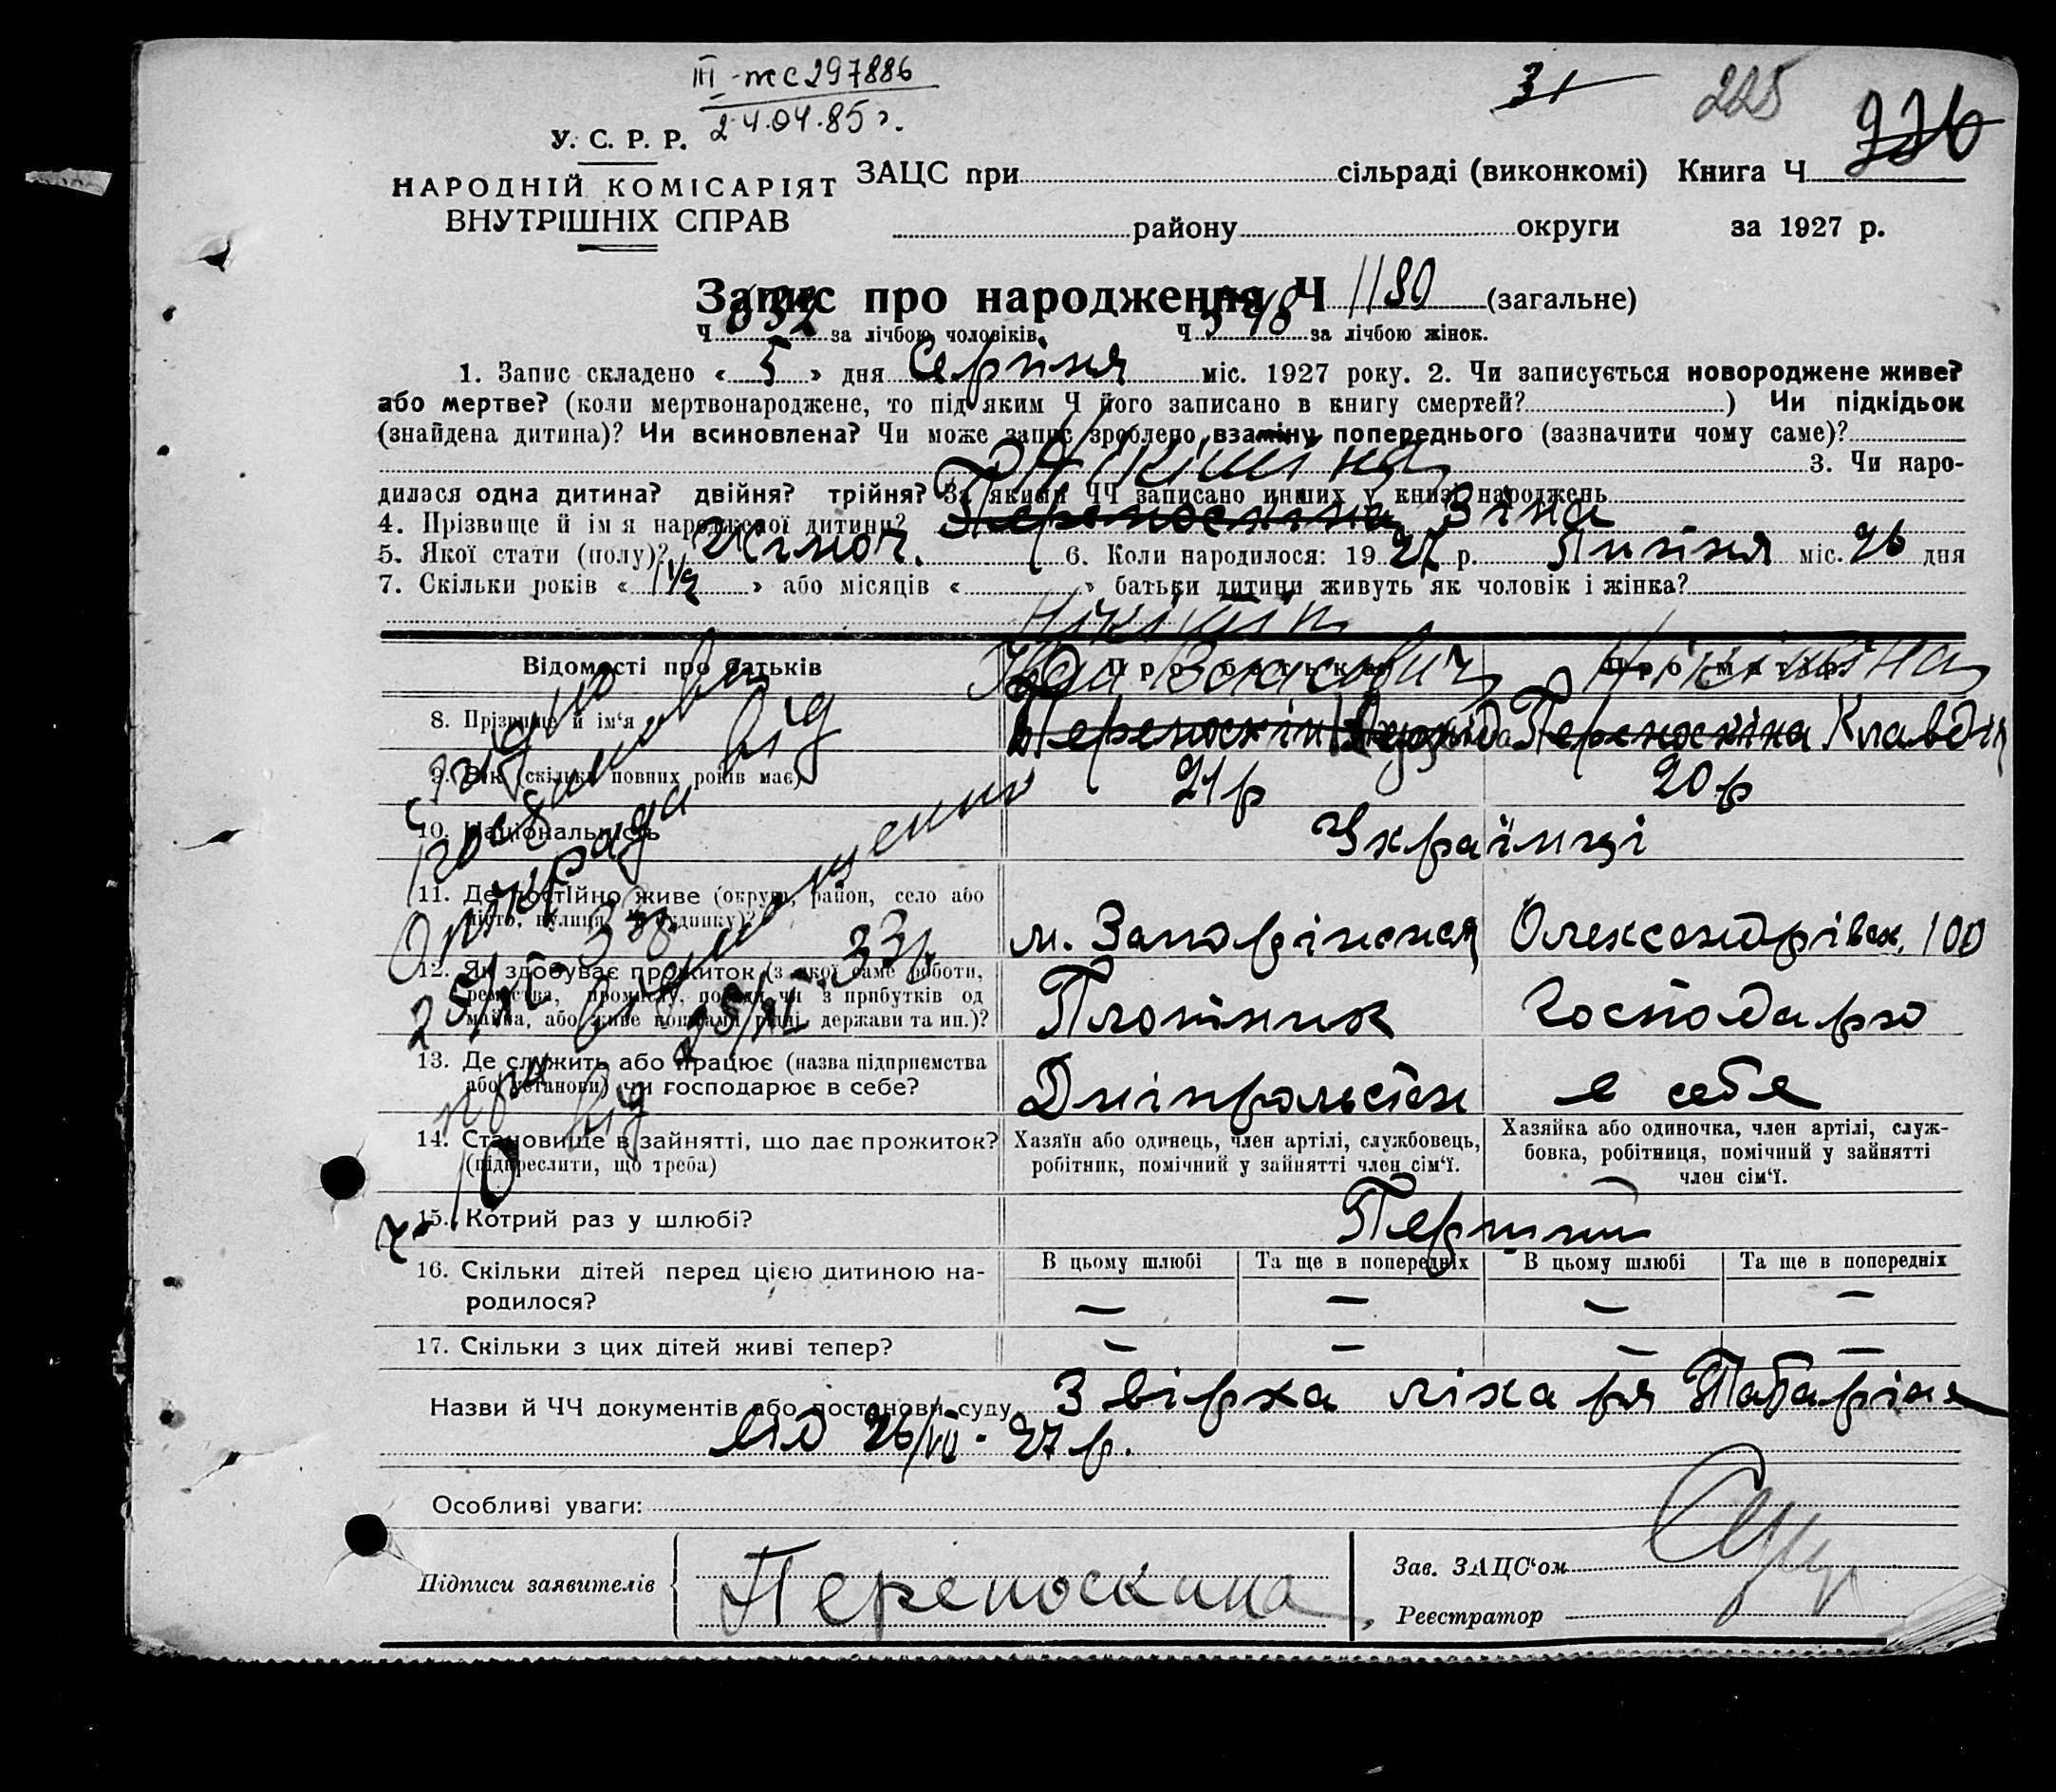 III-жс 297886
24.04.85 г.
31
225
226
У. С. Р. Р.
НАРОДНІЙ КОМІСАРІЯТ
ВНУТРІШНІХ СПРАВ
ЗАЦС при сільраді (виконкомі) Книга Ч
району округи за 1927 р.
Запис про народження Ч 1180 (загальне)
Ч 632 за лічбою чоловіків. Ч 548 за лічбою жінок.
1. Запис складено « 5 » дня Серпня міс. 1927 року. 2. Чи записується новороджене живе?
або мертве? (коли мертвонароджене, то під яким Ч його записано в книгу смертей? ) Чи підкідьок
(знайдена дитина)? Чи всиновлена? Чи може запис зроблено взаміну попереднього (зазначити чому саме)?
Нікішина
3. Чи наро-
дилася одна дитина? двійня? трійня? За якими ЧЧ записано инших у книзі народжень
4. Прізвище й ім я народженої дитини? Переноскіна Зіна
5. Якої стати (полу)? жіноч. 6. Коли народилося: 1927 р. Липня міс. 26 дня
7. Скільки років « 1 1/2 » або місяців « » батьки дитини живуть як чоловік і жінка?
Нікішин
Відомості про батьків
Про батька
Про матір
Іван Власович
Нікішина
8. Прізвище й ім‘я
Переноскін
Переноскіна Клавдія
9. Вік (скільки повних років має)
21 р
20 р
10. Національність
Українці
11. Де постійно живе (округа, район, село або
місто, вулиця, Ч будинку)?
м. Запоріжжя
Олександрівськ. 100
12. Як здобуває прожиток (з якої саме роботи,
ремества, промислу, посади чи з прибутків од
майна, або живе коштами рідні, держави та ин.)?
Плотник
Господарю
13. Де служить або працює (назва підприємства
або установи) чи господарює в себе?
Дніпрольстан
в себе
14. Становище в зайнятті, що дає прожиток?
(підкреслити, що треба)
Хазяїн або одинець, член артілі, службовець,
робітник, помічний у зайнятті член сім‘ї.
Хазяйка або одиночка, член артілі, служ-
бовка, робітниця, помічний у зайнятті
член сім‘ї.
15. Котрий раз у шлюбі?
Перший
16. Скільки дітей перед цією дитиною на-
родилося?
В цьому шлюбі
Та ще в попередніх
В цьому шлюбі
Та ще в попередніх
— — — —
17. Скільки з цих дітей живі тепер?
— — — —
Назви й ЧЧ документів або постанови суду Звірка лікаря
від 26/VII-27 р.
Особливі уваги:
Підписи заявителів
Переноскина
Зав. ЗАЦС‘ом
Реєстратор